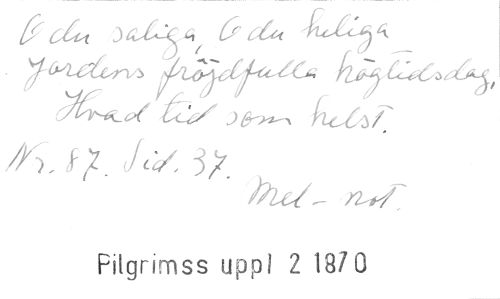 O du saliga, O du heliga
Jordens fröjdfulla högtidsdag,
Hvad tid som helst.
Nr. 87. Sid. 37.
Mel-not.
Pilgrimss uppl 2 1870